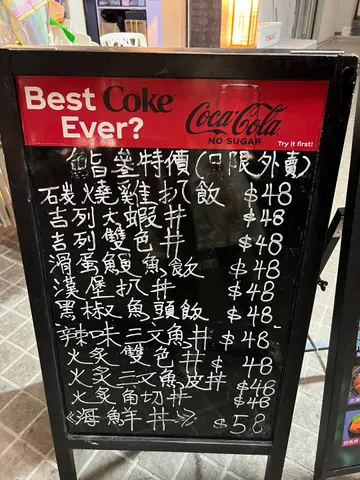 Best Coke
Ever?
Coca-Cola
NO SUGAR
Try it first!
魚旨叁特價(只限外賣)
石碳燒雞扒飯 $48
吉列大蝦丼 $48
吉列雙色丼 $48
滑蛋鰻魚飯 $48
漢堡扒丼 $48
黑椒魚頭飯 $48
辣味三文魚丼 $48
火炙雙色丼 $48
火炙三文魚皮丼 $48
火炙角切丼 $48
《海鮮丼》 $58